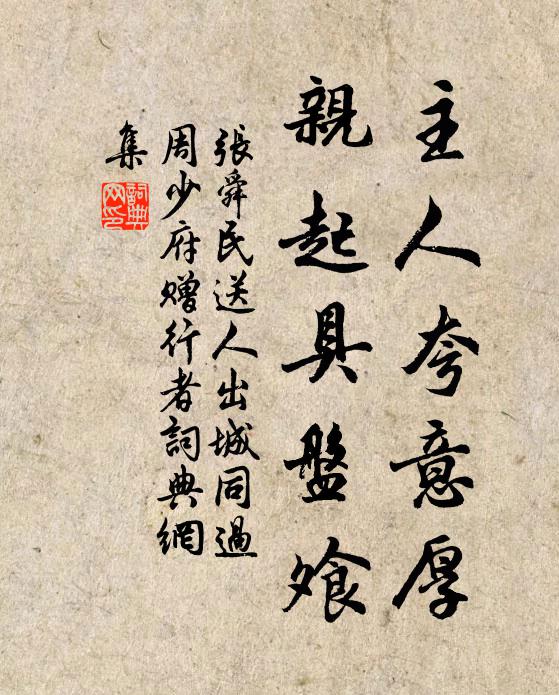 主人夸意厚
親起具盤飧
張舜民送人出城同過
周少府贈行者詞典網
集
詞典
网印